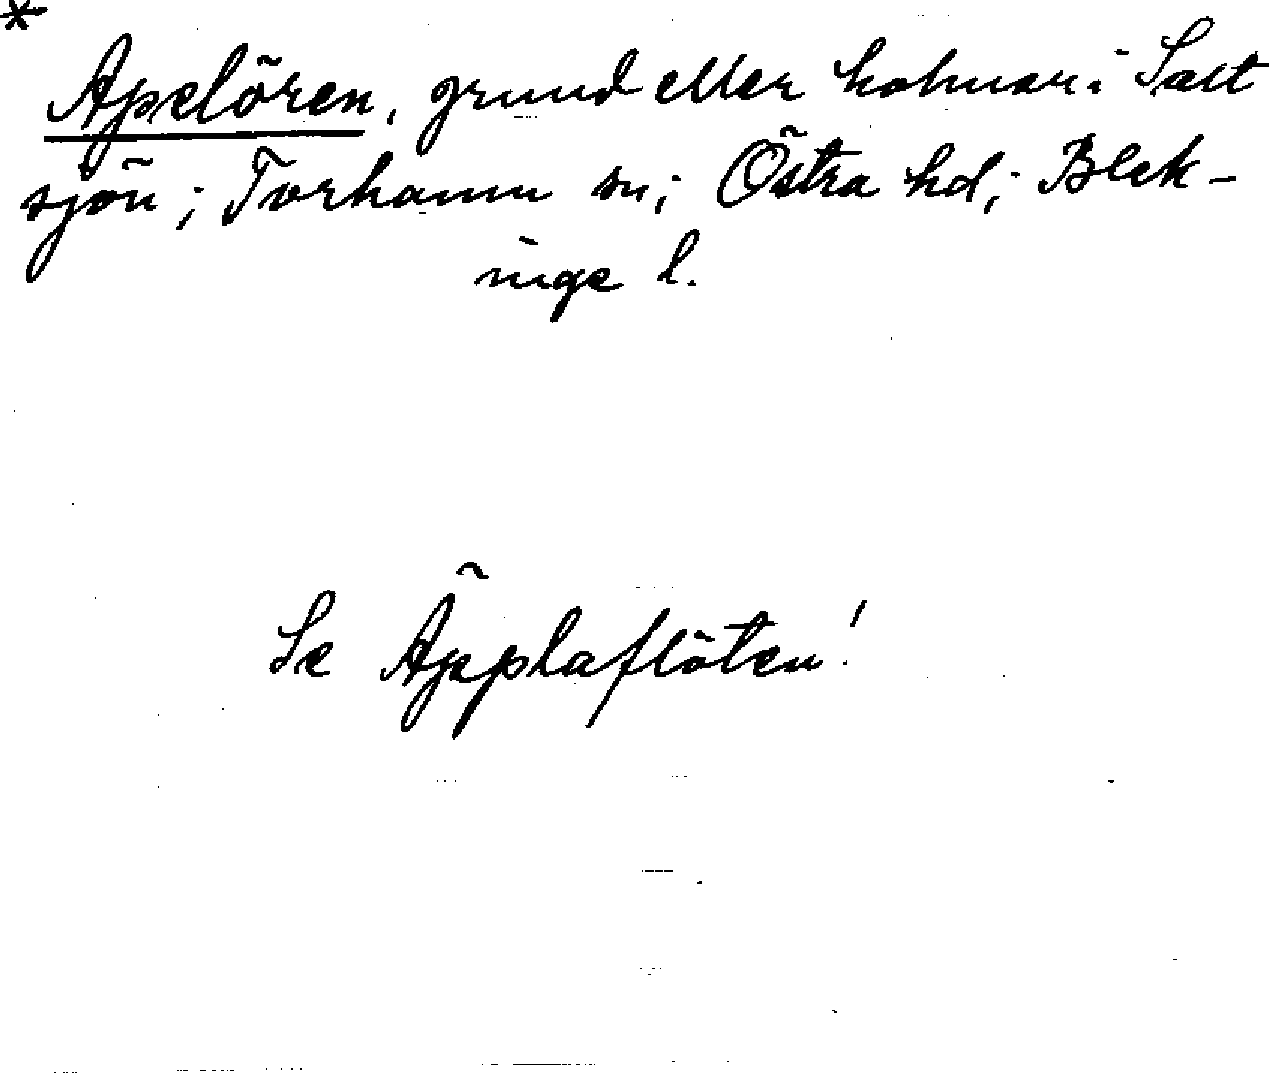 *
Apelören, grund eller holmar i Salt
sjön; Torhamn sn; Östra hd; Blek-
inge l.
Se Äpplaflöten!